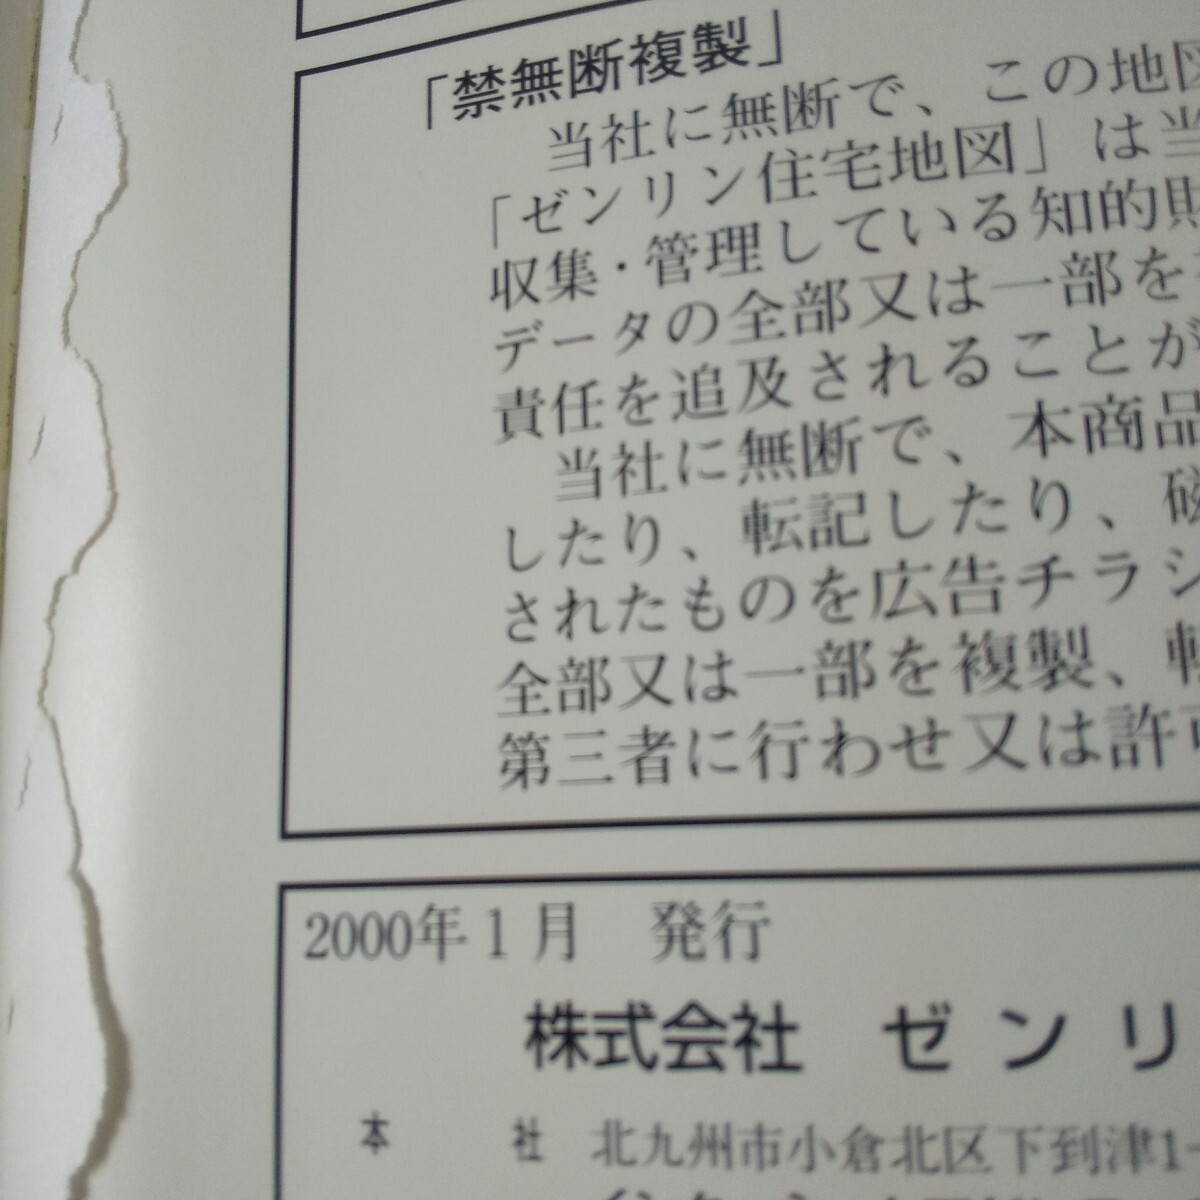 「禁無断複製」
当社に無断で、この地図
「ゼンリン住宅地図」は当
収集・管理している知的財
データの全部又は一部を
責任を追及されることが
当社に無断で、本商品
したり、転記したり、磁
されたものを広告チラシ
全部又は一部を複製、転
第三者に行わせ又は許可
2000年1月 発行
株式会社 ゼンリ
本 社 北九州市小倉北区下到津1-